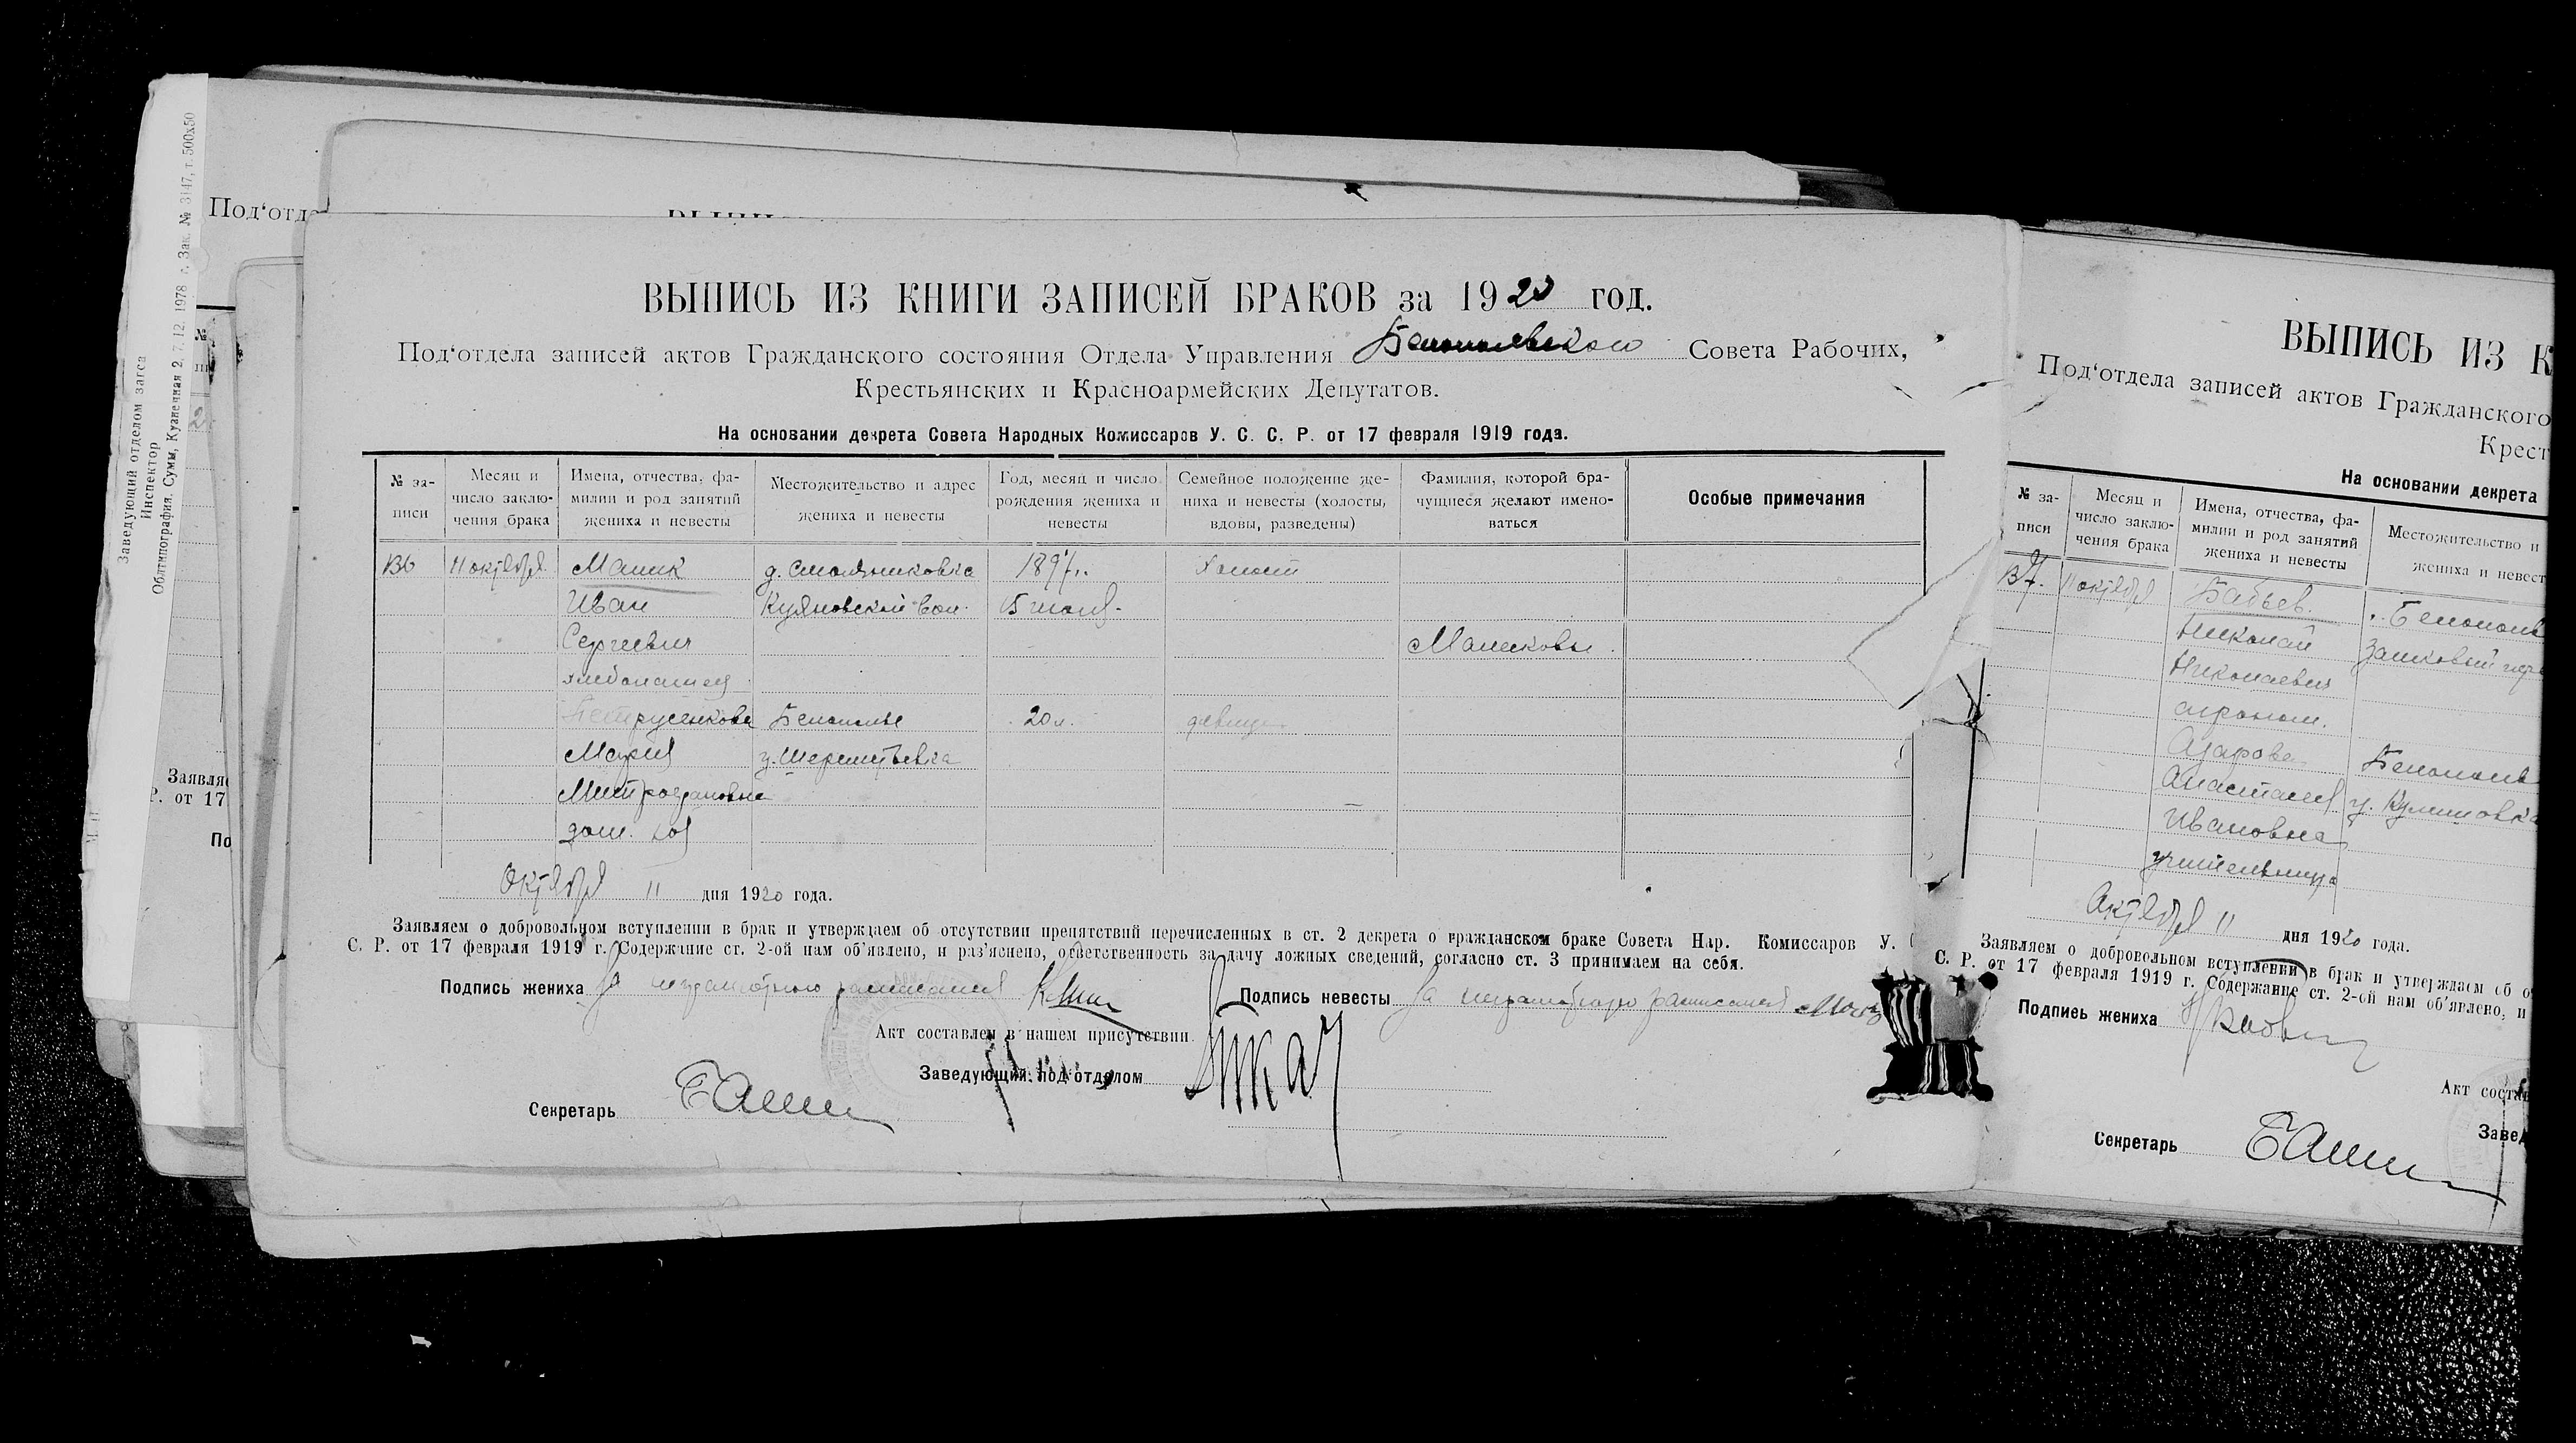 Заведующий отделом загса
Инспектор
Облтипография. Сумы, Кузнечная 2, 7.12. 1978 г. Зак. № 3147, т. 500х50
Под‘отд
Заявля
Р. от 17
По
ВЫПИСЬ ИЗ КНИГИ ЗАПИСЕЙ БРАКОВ за 1920 год.
Под‘отдела записей актов Гражданского состояния Отдела Управления Белопольского Совета Рабочих,
Крестьянских и Красноармейских Депутатов.
На основании декрета Совета Народных Комиссаров У. С. С. Р. от 17 февраля 1919 года.
№ за-
писи
Месяц и
число заклю-
чения брака
Имена, отчества, фа-
милии и род занятий
жениха и невесты
Местожительство и адрес
жениха и невесты
Год, месяц и число
рождения жениха и
невесты
Семейное положение же-
ниха и невесты (холосты,
вдовы, разведены)
Фамилия, которой бра-
чущиеся желают имено-
ваться
Особые примечания
136 11 октября Машк д. Смольниковка 1897 г. Холост
Иван Куяновской вол.
Сергеевич
хлебопашец
Петрусенкова Белополье 20 л. девица
Мария у. Шереметьевка
Митрофановна
дом. хоз
Октября 11 дня 1920 года.
Заявляем о добровольном вступлении в брак и утверждаем об отсутствии препятствий перечисленных в ст. 2 декрета о гражданском браке Совета Нар. Комиссаров У.
С. Р. от 17 февраля 1919 г. Содержание ст. 2-ой нам об‘явлено, и раз‘яснено, ответственность за дачу ложных сведений, согласно ст. 3 принимаем на себя.
Подпись жениха За неграмотного расписался
Подпись невесты За неграмотную расписался
Акт составлен в нашем присутствии.
Заведующий под‘отделом
Секретарь
ВЫПИСЬ ИЗ К
Под‘отдела записей актов Гражданского
Крест
На основании декрета
№ за-
писи
Месяц и
число заклю-
чения брака
Имена, отчества, фа-
милии и род занятий
жениха и невесты
Местожительство и
жениха и невест
137. 11 октября Бабьев Белополь
Николай
Николаевич
агроном.
Азарова Белополь
Анастасия
Ивановна
учительница
Октября 11 дня 1920 года.
Заявляем о добровольном вступлении в брак и утверждаем об о
С. Р. от 17 февраля 1919 г. Содержание ст. 2-ой нам об‘явлено, и
Подпись жениха
Акт состав
Завед
Секретарь